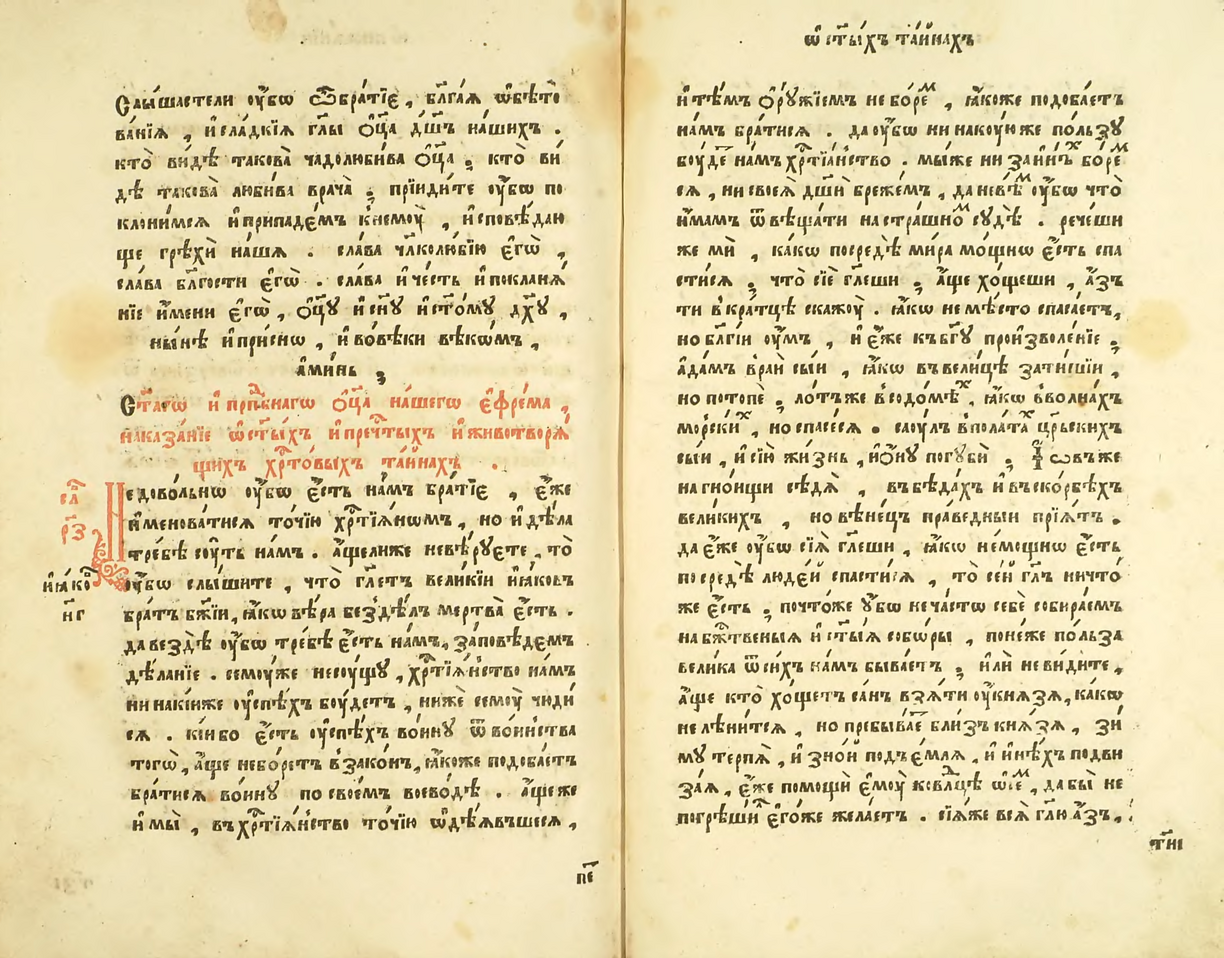 Слышастели оу҆бѡ ѽбра́тїе , бл҃га́ѧ ѡ҆бѣто
ва́нїѧ , и҆сла́дкїѧ гл҃ы ѻ҆ц҃а дш҃ъ на́шихъ .
кто̀ ви́дѣ такова̀ чадолюби́ва ѻ҆ц҃а̀ ; кто̀ ви
дѣ такова̀ люби́ва врача̀ ; прїиди́те оу҆́бѡ по
клони́мсѧ и҆припаде́мъ к̾немоу̀ , и҆сповѣ́даю
ще грѣхѝ на́шѧ . сла́ва чл҃колю́бїю є҆гѡ̀ ,
сла́ва бл҃гости є҆гѡ̀ . сла́ва и҆че́сть и҆покланѧ́
нїе и҆́мени є҆гѡ̀ , ѻ҆ц҃ꙋ̀ и҆сн҃ꙋ и҆ст҃о́мꙋ дх҃ꙋ ,
ны́нѣ и҆при́снѡ , и҆во́вѣки вѣко́мъ ,
а҆ми́нь ;
Ст҃а́гѡ и҆прпⷣбнагѡ ѻ҆ц҃а̀ на́шегѡ є҆фре́ма ,
наказа́нїе ѡ҆ст҃ы́хъ и҆пречⷭ҇тыхъ и҆животворѧ́
щихъ хрⷭ҇то́выхъ та́йнахъ .
сл҃
р҃з
Недово́льнѡ оу҆́бѡ є҆́сть на́мъ бра́тїе , є҆́же
и҆менова́тисѧ то́чїю хрⷭ҇тїѧ́нѡмъ , но и҆дѣ́ла
тре́бѣ соу́ть на́мъ . а҆́щелиже невѣ́рꙋете , то̀
и҆ꙗ҆́коⷡ
н҃г
оу҆́бѡ слы́шите , что̀ гл҃етъ вели́кїи и҆ꙗ҆́ковъ
бра́тъ бж҃їи , ꙗ҆́кѡ вѣ́ра без̾дѣ́лъ мертва̀ є҆́сть .
да вез̾дѣ̀ оу҆́бѡ тре́бѣ є҆́сть на́мъ , за́повѣдемъ
дѣ́ланїе . семоу́же несоу́щꙋ , хрⷭ҇тїѧ́нство на́мъ
нинакі́иже оу҆спѣ́хъ боу́детъ , ни́же семоу̀ чюди
сѧ . кі́ибо є҆́сть оу҆спѣ́хъ во́инꙋ ѿ во́инства
тогѡ̀ , а҆́ще небо́ретъ в̾зако́нъ , ꙗ҆́коже подоба́етъ
бра́тисѧ во́инꙋ по свое́мъ воево́дѣ . а҆́щеже
и҆мы̀ , въ хрⷭ҇тїѧ́нство то́чїю ѡ҆дѣ́ѧвъшесѧ ,
п҃е
ѡ҆ ст҃ы́хъ та́йнахъ
и҆тѣ́мъ ѻ҆рꙋ́жїемъ не бо́реⷨ , ꙗ҆́коже подоба́етъ
на́мъ бра́тисѧ . да оу҆́бѡ нинакоу́юже по́льзꙋ
боу́де на́мъ хрⷭ҇тїа́нство . мы́же ни за и҆́ниⷯ бо́реⷨ
сѧ , ни своеѧ̀ дш҃ѝ бреже́мъ , да невѣ́ⷨ оу҆́бѡ что̀
и҆́мамъ ѿвѣща́ти на стра́шноⷨ сꙋдѣ̀ . рече́ши
же мѝ , ка́кѡ посредѣ̀ ми́ра мо́щнѡ є҆́сть спа
сти́сѧ ; что̀ сїѐ гл҃еши ; а҆́ще хо́щеши , а҆́зъ
ти вкра́тцѣ скажоу̀ . ꙗ҆́кѡ не мѣ́сто спаса́етъ ,
но бл҃гі́и оу҆́мъ , и҆ є҆́же къ бг҃ꙋ произволе́нїе ;
а҆да́мъ в̾раѝ сы́и , ꙗ҆́кѡ въ вели́цѣ зати́шїи ,
но потопѐ ; ло́тъ же в̾содо́мѣⷯ , ꙗ҆́кѡ вволна́хъ
морскиⷯ , но спасе́сѧ . саоу́лъ в̾пола́таⷯ црⷭ҇кихъ
сы́и , и҆ сїю̀ жи́знь , и҆ ѻ҆́нꙋ погꙋбѝ ; І҆́ѡвъ же
на гно́ищи сѣдѧ̀ , въ бѣда́хъ и҆ въ ско́рбѣхъ
вели́кихъ , но вѣне́цъ пра́ведныи прїѧ́тъ .
да є҆́же оу҆́бѡ сїѧ̀ гл҃еши , ꙗ҆́кѡ не́мощнѡ є҆́сть
посредѣ̀ люде́й спасти́сѧ , то се́й гл҃ъ ничто́
же є҆́сть ; почто́же ᲂу҆́бѡ не ча́стѡ себѐ собира́емъ
на бжⷭ҇твеныѧ и҆ ст҃ы́ѧ собо́ры , поне́же по́льза
вели́ка ѿ си́хъ на́мъ быва́етъ ; и҆лѝ не ви́дите ,
а҆́ще кто̀ хо́щетъ са́нъ взѧ́ти оу҆ кнѧ́зѧ , ка́кѡ
не лѣни́тсѧ , но пребыва́еⷮ бли́зъ кнѧ́зѧ , зи́
мꙋ терпѧ̀ , и҆ зно́й подъе́млѧ , и҆ и҆нѣ́хъ подви
за́ѧ , є҆́же помощѝ є҆моу̀ ко влⷣцѣ ѡ҆ сеⷨ , дабы̀ не
погрѣшѝ є҆го́же жела́етъ . сїѧ́же всѧ̀ гл҃ю а҆́зъ ,
т҃иі